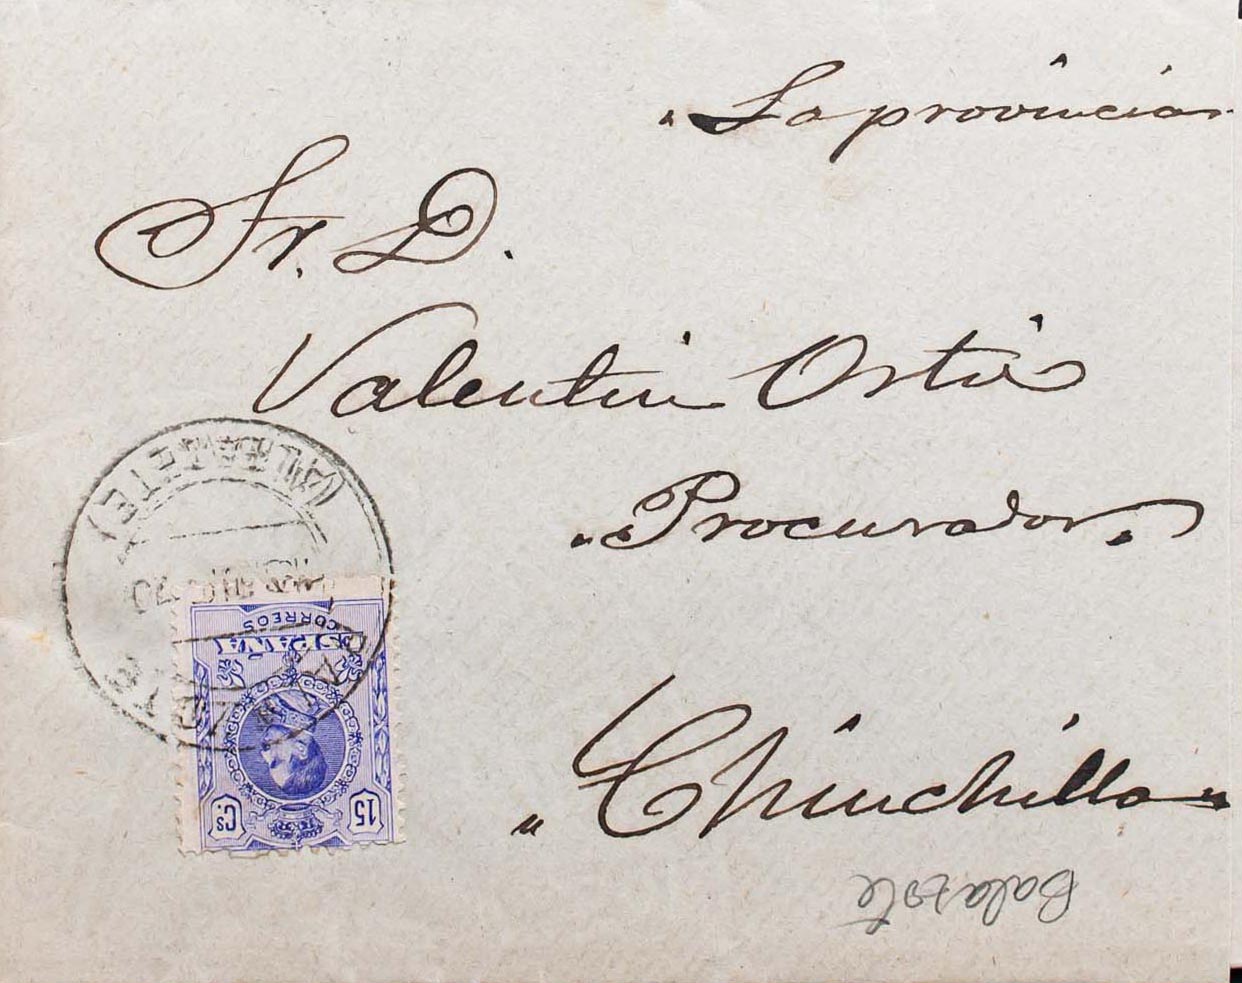 "La provincia"
Sr. D.
Valentin Ortiz
"Procurador"
"Chinchilla"
(ALBACETE)
BALAZOTE
CORREOS
ESPAÑA
15 Cs.
Balazote